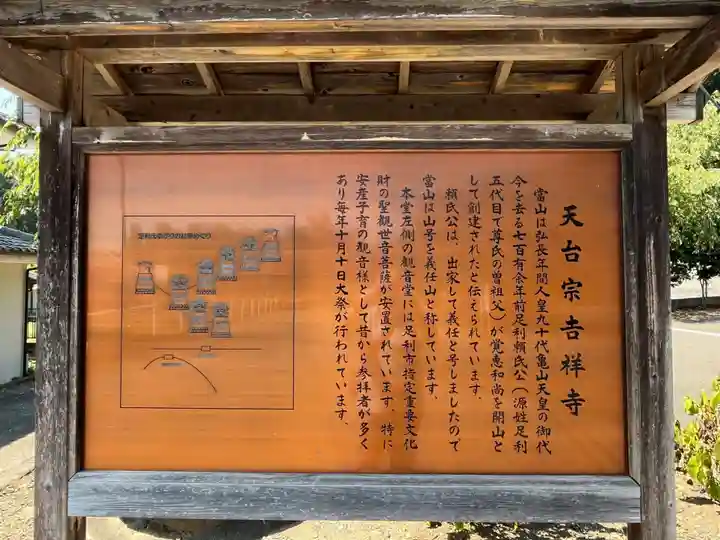 天台宗吉祥寺
當山は弘長年間人皇九十代亀山天皇の御代
今を去る七百有余年前足利頼氏公(源姓足利
五代目で尊氏の曽祖父)が覚恵和尚を開山と
して創建されたと伝えられています。
頼氏公は、出家して義任と号しましたので
當山は山号を義任山と称しています。
本堂左側の観音堂には足利市指定重要文化
財の聖観世音菩薩が安置されています。特に
安産子育の観音様として昔から参拝者が多く
あり毎年十月十日大祭が行われています。